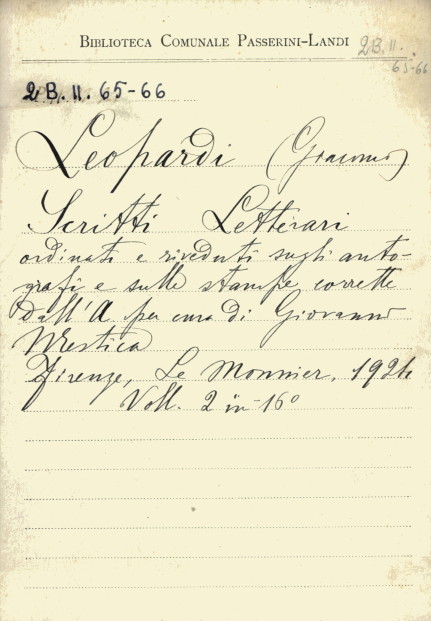 BIBLIOTECA COMUNALE PASSERINI-LANDI 2B. II.
65-66
2 B. II. 65-66
Leopardi (Giacomo)
Scritti Letterari
ordinati e riveduti sugli auto-
grafi e sulle stampe corrette
dall'A per cura di Giovanni
Mestica
Firenze, Le Monnier, 1924
Voll. 2 in-16°